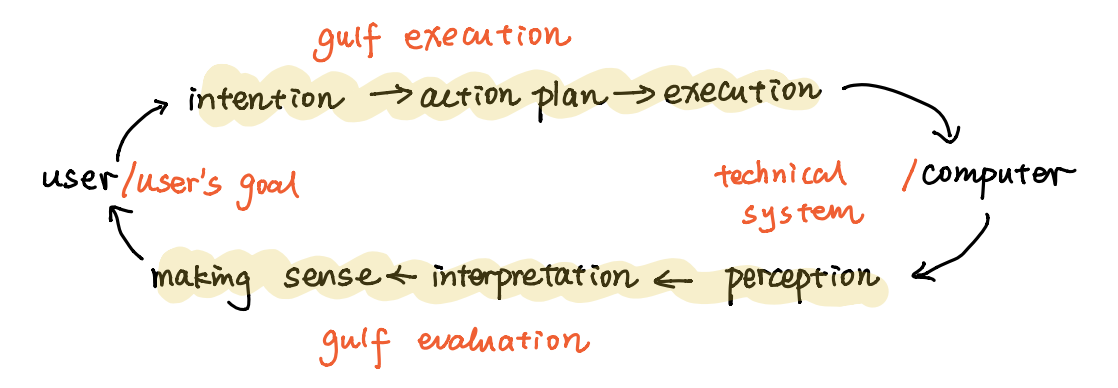 gulf execution
intention → action plan → execution
user/user's goal
technical system /computer
making sense ← interpretation ← perception
gulf evaluation